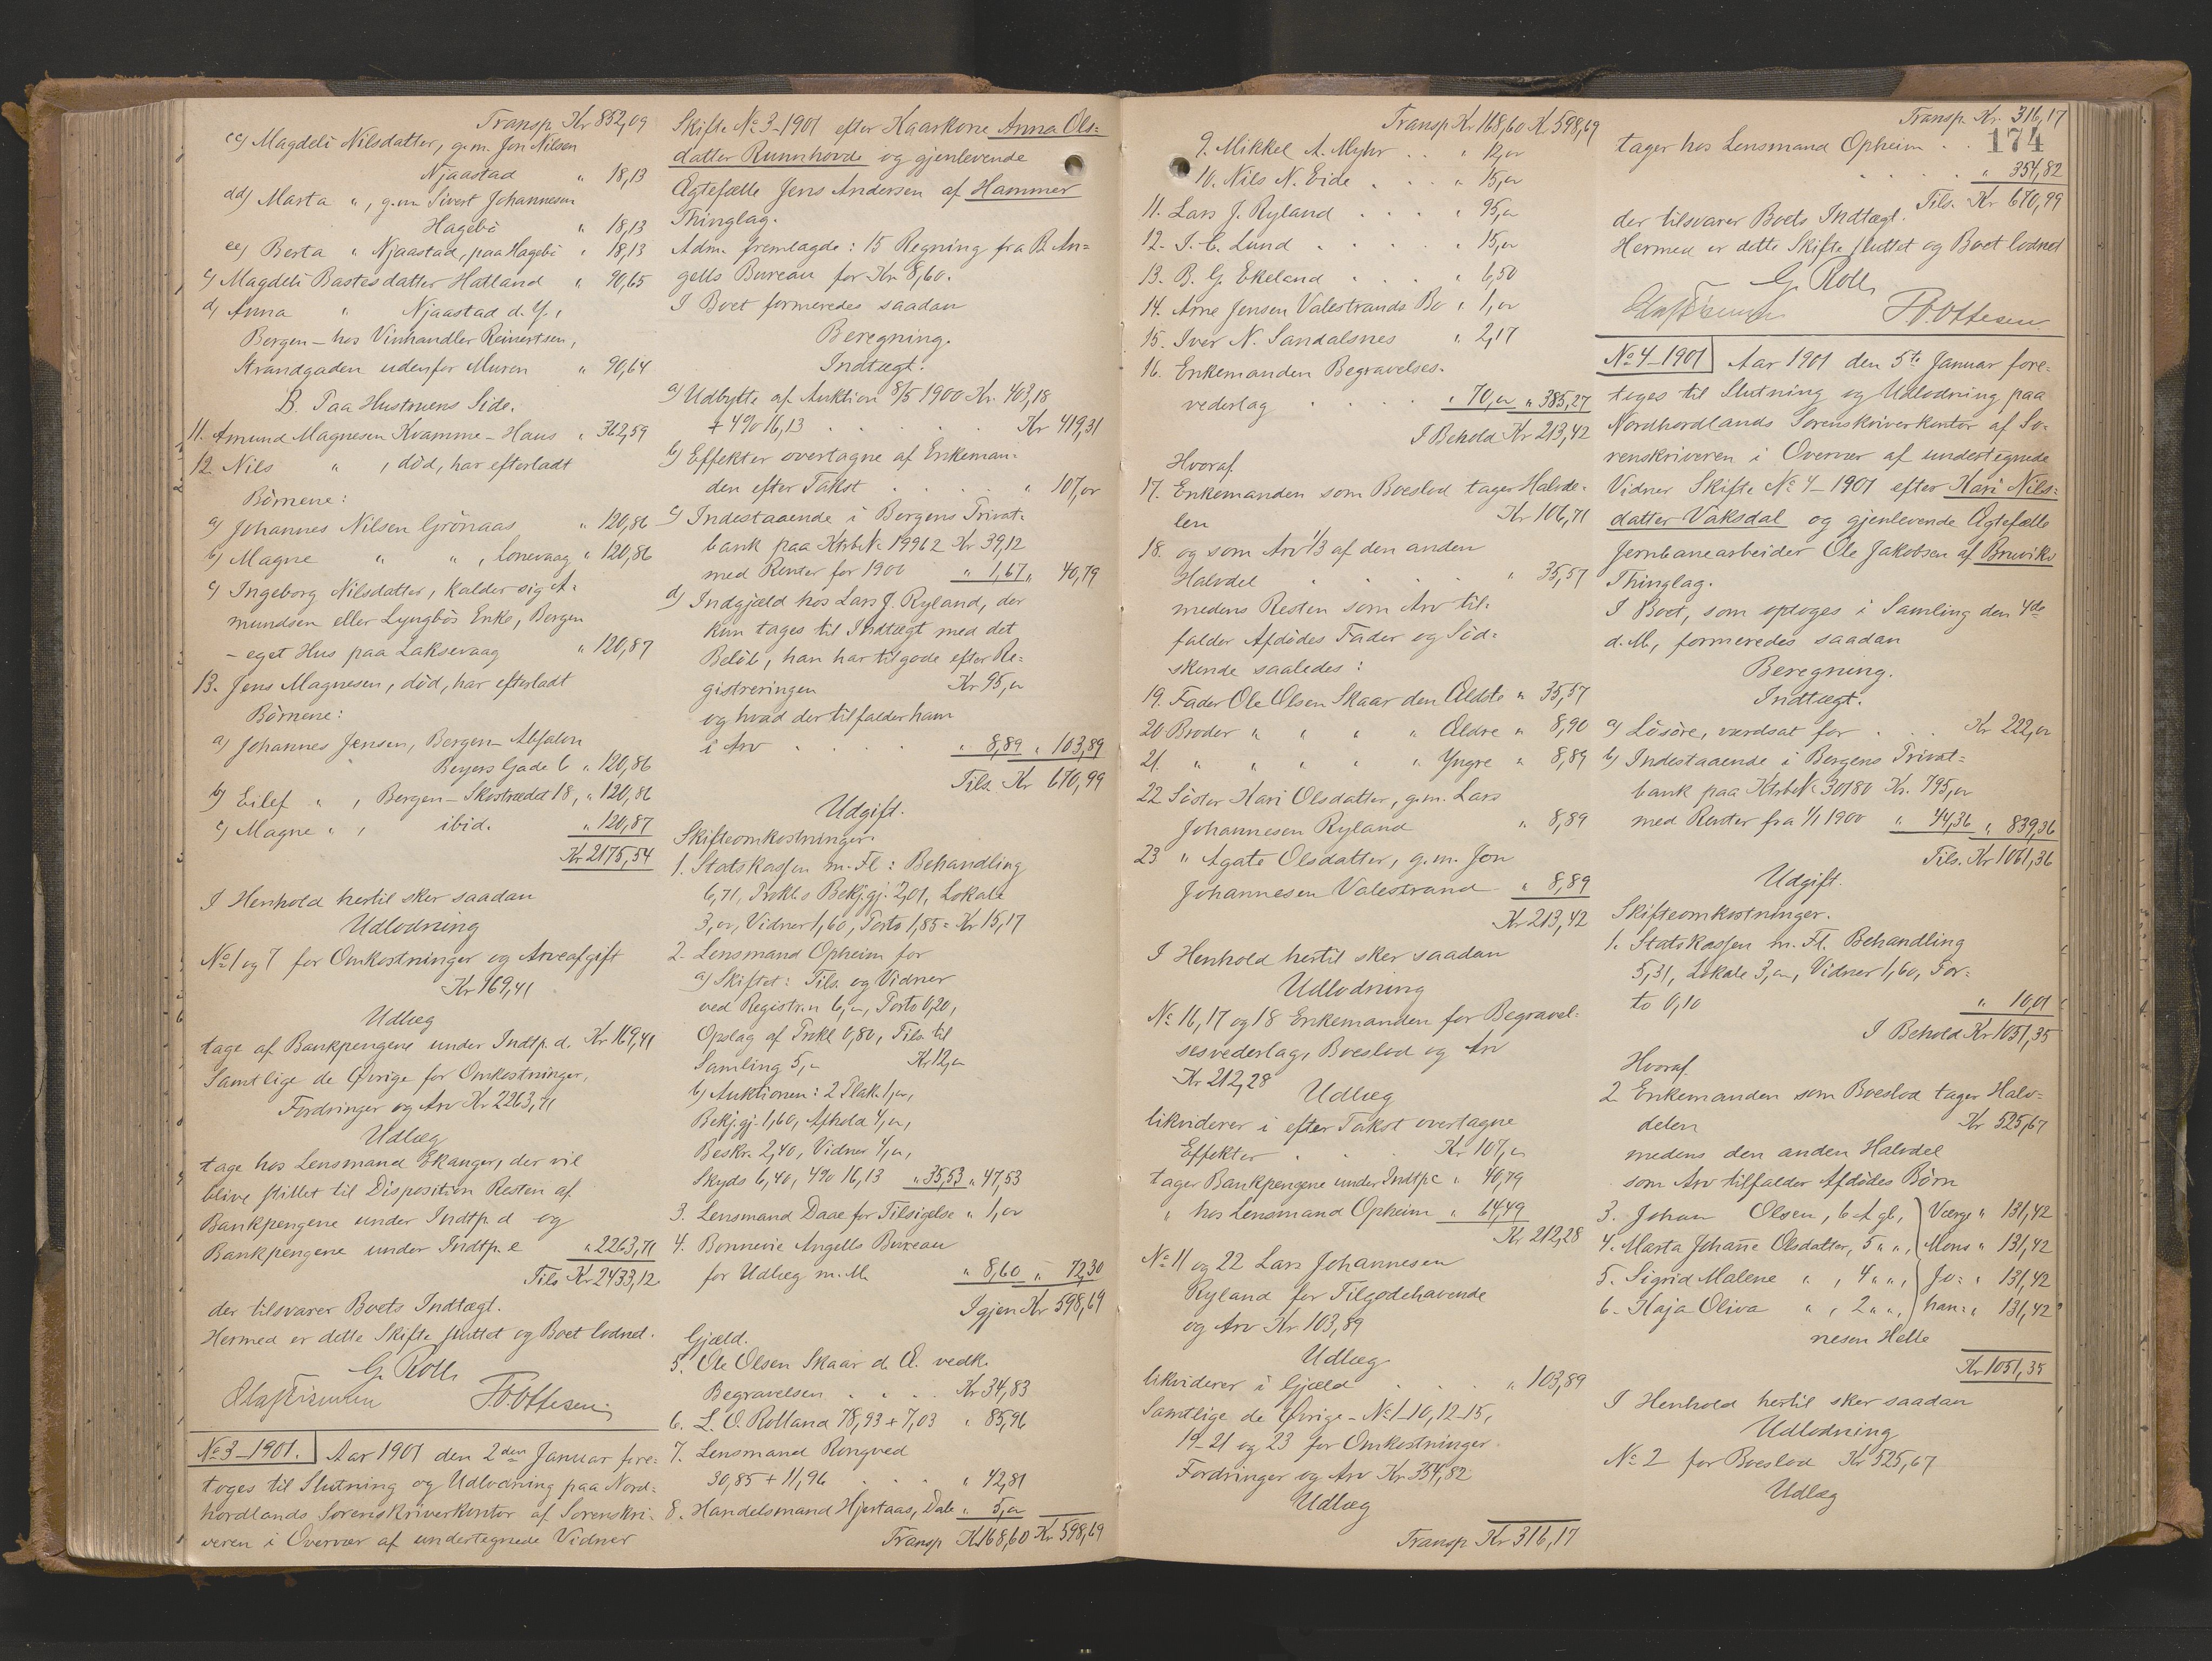 Transp. Kr 852,09
cc) Magdeli Nilsdatter, g.m. Jon Nilsen
Njaastad " 18,13
dd) Marta " , g.m. Sivert Johannesen
Hagebö " 18,13
ee) Berta " Njaastad, paa Hagebö " 18,13
c) Magdeli Bastesdatter Hatland " 90,65
d) Anna " Njaastad d. Y.,
Bergen – hos Vinhandler Reinertsen,
Strandgaden udenfor Muren " 90,64
B. Paa Hustruens Side.
11. Amund Magnesen Kvamme – Haus " 362,59
12. Nils " , död, har efterladt
Börnene:
a) Johannes Nilsen Grönaas " 120,86
b) Magne " " , Lonevaag " 120,86
c) Ingeborg Nilsdatter, kalder sig A=
mundsen eller Lyngbös Enke, Bergen
– eget Hus paa Laksevaag " 120,87
13. Jens Magnesen, död, har efterladt
Börnene:
a) Johannes Jensen, Bergen – Absalon
Beyers Gade 6 " 120,86
b) Eilef " , Bergen – Skostrædet 18, " 120,86
c) Magne " , ibid. " 120,87
Kr 2175,54
I Henhold hertil sker saadan
Udlodning
No 1 og 7 for Omkostninger og Arveafgift
Kr 169,41
Udlæg
tage af Bankpengene under Indtp. d. Kr 169,41
Samtlige de Øvrige for Omkostninger,
Fordringer og Arv Kr 2263,71
Udlæg
tage hos Lensmand Ekanger, der vil
blive stillet til Disposition Resten af
Bankpengene under Indtp. d og
Bankpengene under Indtp. e " 2263,71
Tils. Kr 2433,12
der tilsvarer Boets Indtægt.
Hermed er dette Skifte sluttet og Boet lodnet.
G. Roll
F.O. Ottesen
No 3–1901. Aar 1901 den 2den Januar fore=
toges til Slutning og Udlodning paa Nord=
hordlands Sorenskriverkontor af Sorenskri=
veren i Overvær af undertegnede Vidner
Skifte No 3–1901 efter Kaarkone Anna Ols=
datter Runnhovde og gjenlevende
Ægtefælle Jens Andersen af Hammer
Thinglag.
Adm. fremlagde: 15 Regning fra B. An=
gells Bureau for Kr 8,60.
I Boet formeredes saadan
Beregning.
Indtægt.
a) Udbytte af Auktion 8/5 1900 Kr. 403,18
+ 4% 16,13 . . . Kr 419,31
b) Effekter overtagne af Enkeman=
den efter Takst . . . " 107,00
c) Indestaaende i Bergens Privat=
bank paa Ktrb. No 19962 Kr 39,12
med Renter for 1900 " 1,67 " 40,79
d) Indgjæld hos Lars J. Ryland, der
kun tages til Indtægt med det
Beløb, han har tilgode efter Re=
gistreringen Kr 95,00
og hvad der tilfalder ham
i Arv . . . " 8,89 " 103,89
Tils. Kr 670,99
Udgift.
Skifteomkostninger.
1. Statskassen m. Fl.: Behandling
6,71, Prokl. s Bekj.gj. 2,01, Lokale
3,00, Vidner 1,60, Porto 1,85 = Kr 15,17
2. Lensmand Opheim for
a) Skiftet: Tils. og Vidner
ved Registr.n 6,00, Porto 0,20,
Opslag af Prokl. 0,80, Tils. til
Samling 5,00 Kr 12,00
b) Auktionen: 2 Plak. 1,00,
Bekj.gj. 1,60, Afhold 4,00,
Beskr. 2,40, Vidner 4,00,
Skyds 6,40, 4% 16,13 " 35,53 " 47,53
3. Lensmand Daae for Tilsigelse " 1,00
4. Bonnevie Angells Bureau
for Udlæg m. M. " 8,60 " 72,30
Igjen Kr 598,69
Gjæld.
5. Ole Olsen Skaar d. Æ. vedk.
Begravelsen . . . Kr 34,83
6. L. O. Rolland 78,93 + 7,03 " 85,96
7. Lensmand Rongved
30,85 + 11,96 . . . " 42,81
8. Handelsmand Hjertaas, Dale " 5,00
Transp. Kr 168,60 Kr 598,69
Transp. Kr 168,60 Kr 598,69
9. Mikkel A. Myhr . . " 12,00
10. Nils N. Eide . . . " 15,00
11. Lars J. Ryland . . . " 95,00
12. J. C. Lund . . . " 15,00
13. B. G. Ekeland . . . " 6,50
14. Arne Jensen Valestrands Bo " 1,00
15. Iver N. Sandalsnes " 2,17
16. Enkemanden Begravelses=
vederlag . . . " 70,00 " 385,27
I Behold Kr 213,42
Hvoraf
17. Enkemanden som Boeslod tager Halvde=
len Kr 106,71
18. og som Arv 1/3 af den anden
Halvdel . . . " 35,57
medens Resten som Arv til=
falder Afdödes Fader og Söd=
skende saaledes:
19. Fader Ole Olsen Skaar den Ældste " 35,57
20 Broder " " " " Ældre " 8,90
21. " " " " " Yngre " 8,89
22 Söster Kari Olsdatter, g.m. Lars
Johannesen Ryland " 8,89
23 " Agate Olsdatter, g.m. Jon
Johannesen Valestrand " 8,89
Kr 213,42
I Henhold hertil sker saadan
Udlodning
No 16, 17 og 18 Enkemanden for Begravel=
sesvederlag, Boeslod og Arv
Kr 212,28
Udlæg
likviderer i efter Takst overtagne
Effekter . . . Kr 107,00
tager Bankpengene under Indtp. c " 40,79
" hos Lensmand Opheim " 64,49
Kr 212,28
No 11 og 22 Lars Johannesen
Ryland for Tilgodehavende
og Arv Kr 103,89
Udlæg
likviderer i Gjæld . . . " 103,89
Samtlige de Øvrige – No 1–10, 12–15,
19–21 og 23 for Omkostninger
Fordringer og Arv Kr 354,82
Udlæg
Transp. Kr 316,17
Transp. Kr. 316,17
174
tager hos Lensmand Opheim . .
" 354,82
Tils. Kr 670,99
der tilsvarer Boets Indtægt.
Hermed er dette Skifte sluttet og Boet lodnet
G. Roll
F.O. Ottesen
No 4–1901 Aar 1901 den 5te Januar fore=
toges til Slutning og Udlodning paa
Nordhordlands Sorenskriverkontor af So=
renskriveren i Overvær af undertegnede
Vidner Skifte No 4–1901 efter Kari Nils=
datter Vaksdal og gjenlevende Ægtefælle
Jernbanearbeider Ole Jakobsen af Bruviks
Thinglag.
I Boet, som optoges i Samling den 4de
d.M., formeredes saadan
Beregning.
Indtægt.
a) Lösöre, værdsat for . . . Kr 222,00
b) Indestaaende i Bergens Privat=
bank paa Ktrb. No 30180 Kr. 795,00
med Renter fra 1/1 1900 " 44,36 " 839,36
Tils. Kr 1061,36
Udgift.
Skifteomkostninger.
1. Statskassen m. Fl. Behandling
5,31, Lokale 3,00, Vidner 1,60, Por=
to 0,10 " 10,01
I Behold Kr 1051,35
Hvoraf
2 Enkemanden som Boeslod tager Halv=
delen Kr 525,67
medens den anden Halvdel
som Arv tilfalder Afdödes Börn
3. Johan Olsen, 6 A gl., Værge " 131,42
4. Marta Johanne Olsdatter, 5 " " , Mons " 131,42
5. Sigrid Malene " , 4 " " , Jo= " 131,42
6. Kaja Oliva " , 2 " " , han= " 131,42
nesen Helle
Kr 1051,35
I Henhold hertil sker saadan
Udlodning
No 2 for Boeslod Kr 525,67
Udlæg